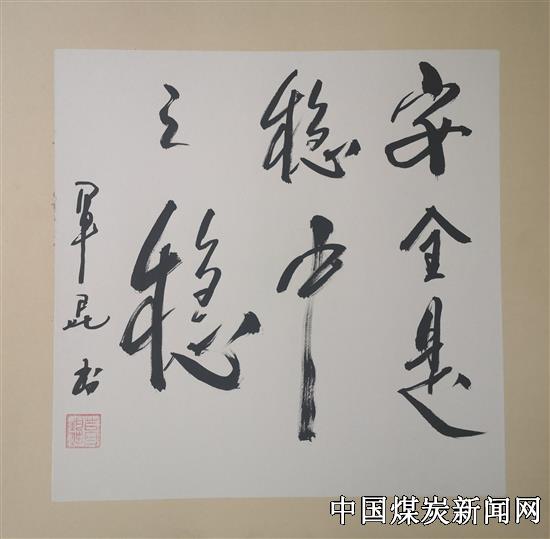 安全是
稳中
之稳
军昆书
中国煤炭新闻网